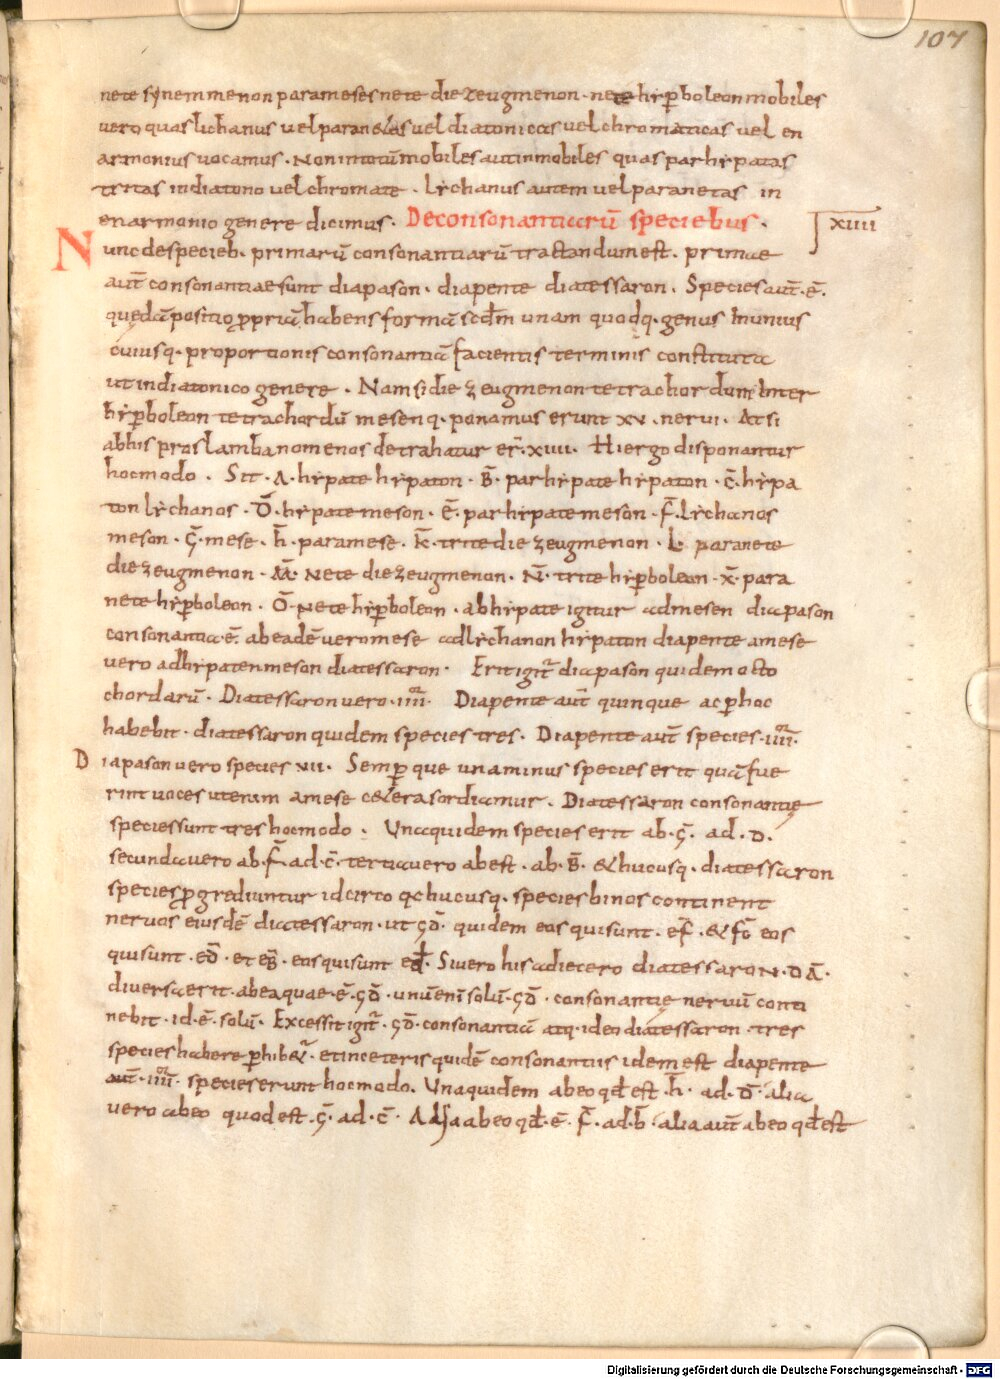 107
nete synemmenon parameses nete die zeugmenon · nete hyꝑboleon mobiles
vero quas lichanus vel paran&as vel diatonicas vel chromaticas vel en
armonius uocamus · Non in totū mobiles aut inmobiles quas parhypatas
tritas in diatono vel chromate · Lychanus autem vel paranetas in
enarmonio genere dicimus · De consonantiarū speciebus · xiiii
Nunc de specieb · primarū consonantiarū tractandum est · primae
aut̄ consonantiae sunt diapason · diapente diatessaron · Species aut̄ · ē ·
quedā positio ꝓpriā habens formā scdm unam quodq · genus In unius
cuiusq · proportionis consonantiā facientis terminis constituta
ut in diatonico genere · Nam si die zeugmenon tetrachordum Inter
hyꝑboleon tetrachordū mesen q · ponamus erunt xv · nervi · At si
ab his proslambanomenos detrahatur er̄ · xiiii · Hi ergo disponantur
hoc modo · Sit · A · hypate hypaton · B̄ · parhypate hypaton · C̄ · hypa
ton lychanos · D̄ · hypate meson · Ē · parhypate meson · F̄ · Lychanos
meson · Ḡ · mese · h̄ · paramese · K̄ · trite die zeugmenon · L · paranete
die zeugmenon · M̄ · Nete die zeugmenon · N̄ · trite hyꝑboleon · X̄ · para
nete hyꝑboleon · Ō · Nete hyꝑboleon · ab hypate igitur ad mesen diapason
consonantia ē · ab eadē vero mese ad lychanon hypaton diapente a mese
vero ad hypaten meson diatessaron · Erit igit̄ diapason quidem octo
chordarū · Diatessaron vero · iiii · Diapente aut̄ quinque ac ꝑ hoc
habebit · diatessaron quidem species tres · Diapente aut̄ species · iiii ·
Diapason vero species vii · Semꝑ que una minus species erit quā fue
rint voces uterum a mese c&eras ordiamur · Diatessaron consonantię
species sunt tres hoc modo · Una quidem species erit ab · Ḡ · ad · D ·
secunda vero ab · F̄ · ad · C̄ · tertia vero ab est · ab · B̄ · & hucusq · diatessaron
species ꝓgrediuntur idcirco q hucusq · species binos continent
nervos eiusdē diatessaron · ut GD̄ · quidem eos qui sunt · eF̄ · & Fc̄ eos
qui sunt · eD̄ · et eB̄ · eos qui sunt ed · Si vero his adiecero diatessaroN · D Ā ·
diversa erit · ab ea quae · ē · GD̄ · unū eni solū · GD̄ · consonantię nervū conti
nebit · id · ē · solū · Excessit igit̄ · GD̄ · consonantiā atq · ideo diatessaron · tres
species habere ꝑhib& · et in ceteris quidē consonantiis idem est diapente
aut̄ · iiii · species erunt hoc modo · Una quidem ab eo qd est · h̄ · ad · D̄ · alia
vero ab eo quod est · Ḡ · ad · C̄ · Alia ab eo qd · ē · F̄ · ad · b̄ · alia aut̄ ab eo qd est
Digitalisierung gefördert durch die Deutsche Forschungsgemeinschaft · DFG